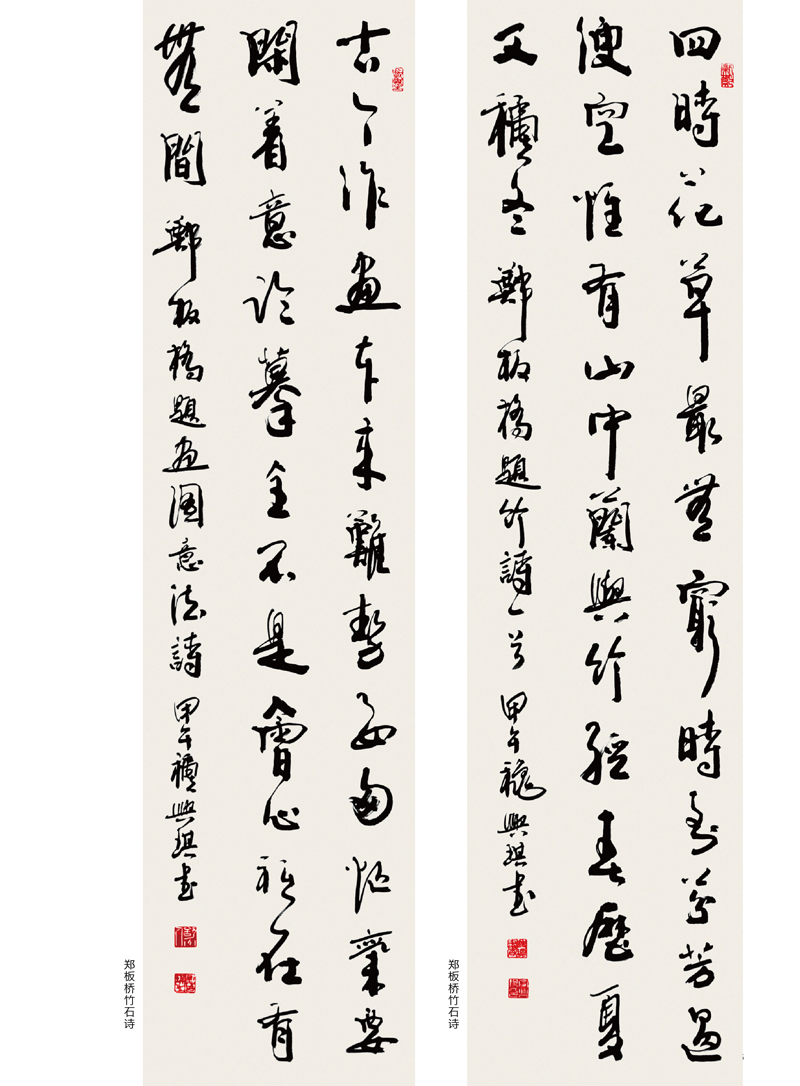 四時花草最無窮時到芬芳過
便空惟有山中蘭與竹經春歷夏
又穐冬 鄭板橋題竹詩一首 甲午穐興琪書
郑板桥竹石诗
古今作畫本來難勢要匆忙氣要
閑着意臨摹全不是會心祇在有
無間 鄭板橋題畫圖意法詩 甲午穐興琪書
郑板桥竹石诗